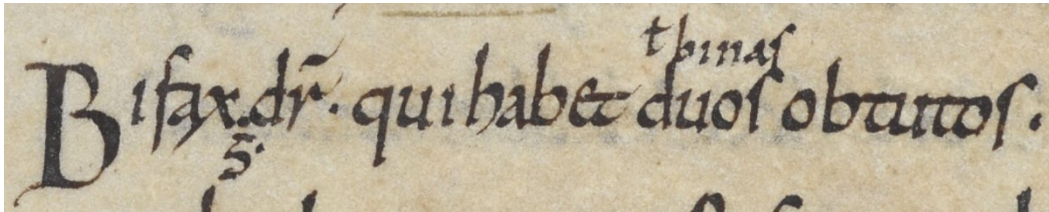 ł binas
Bifax. dr̄. qui habet duos obtutos.
s̄.